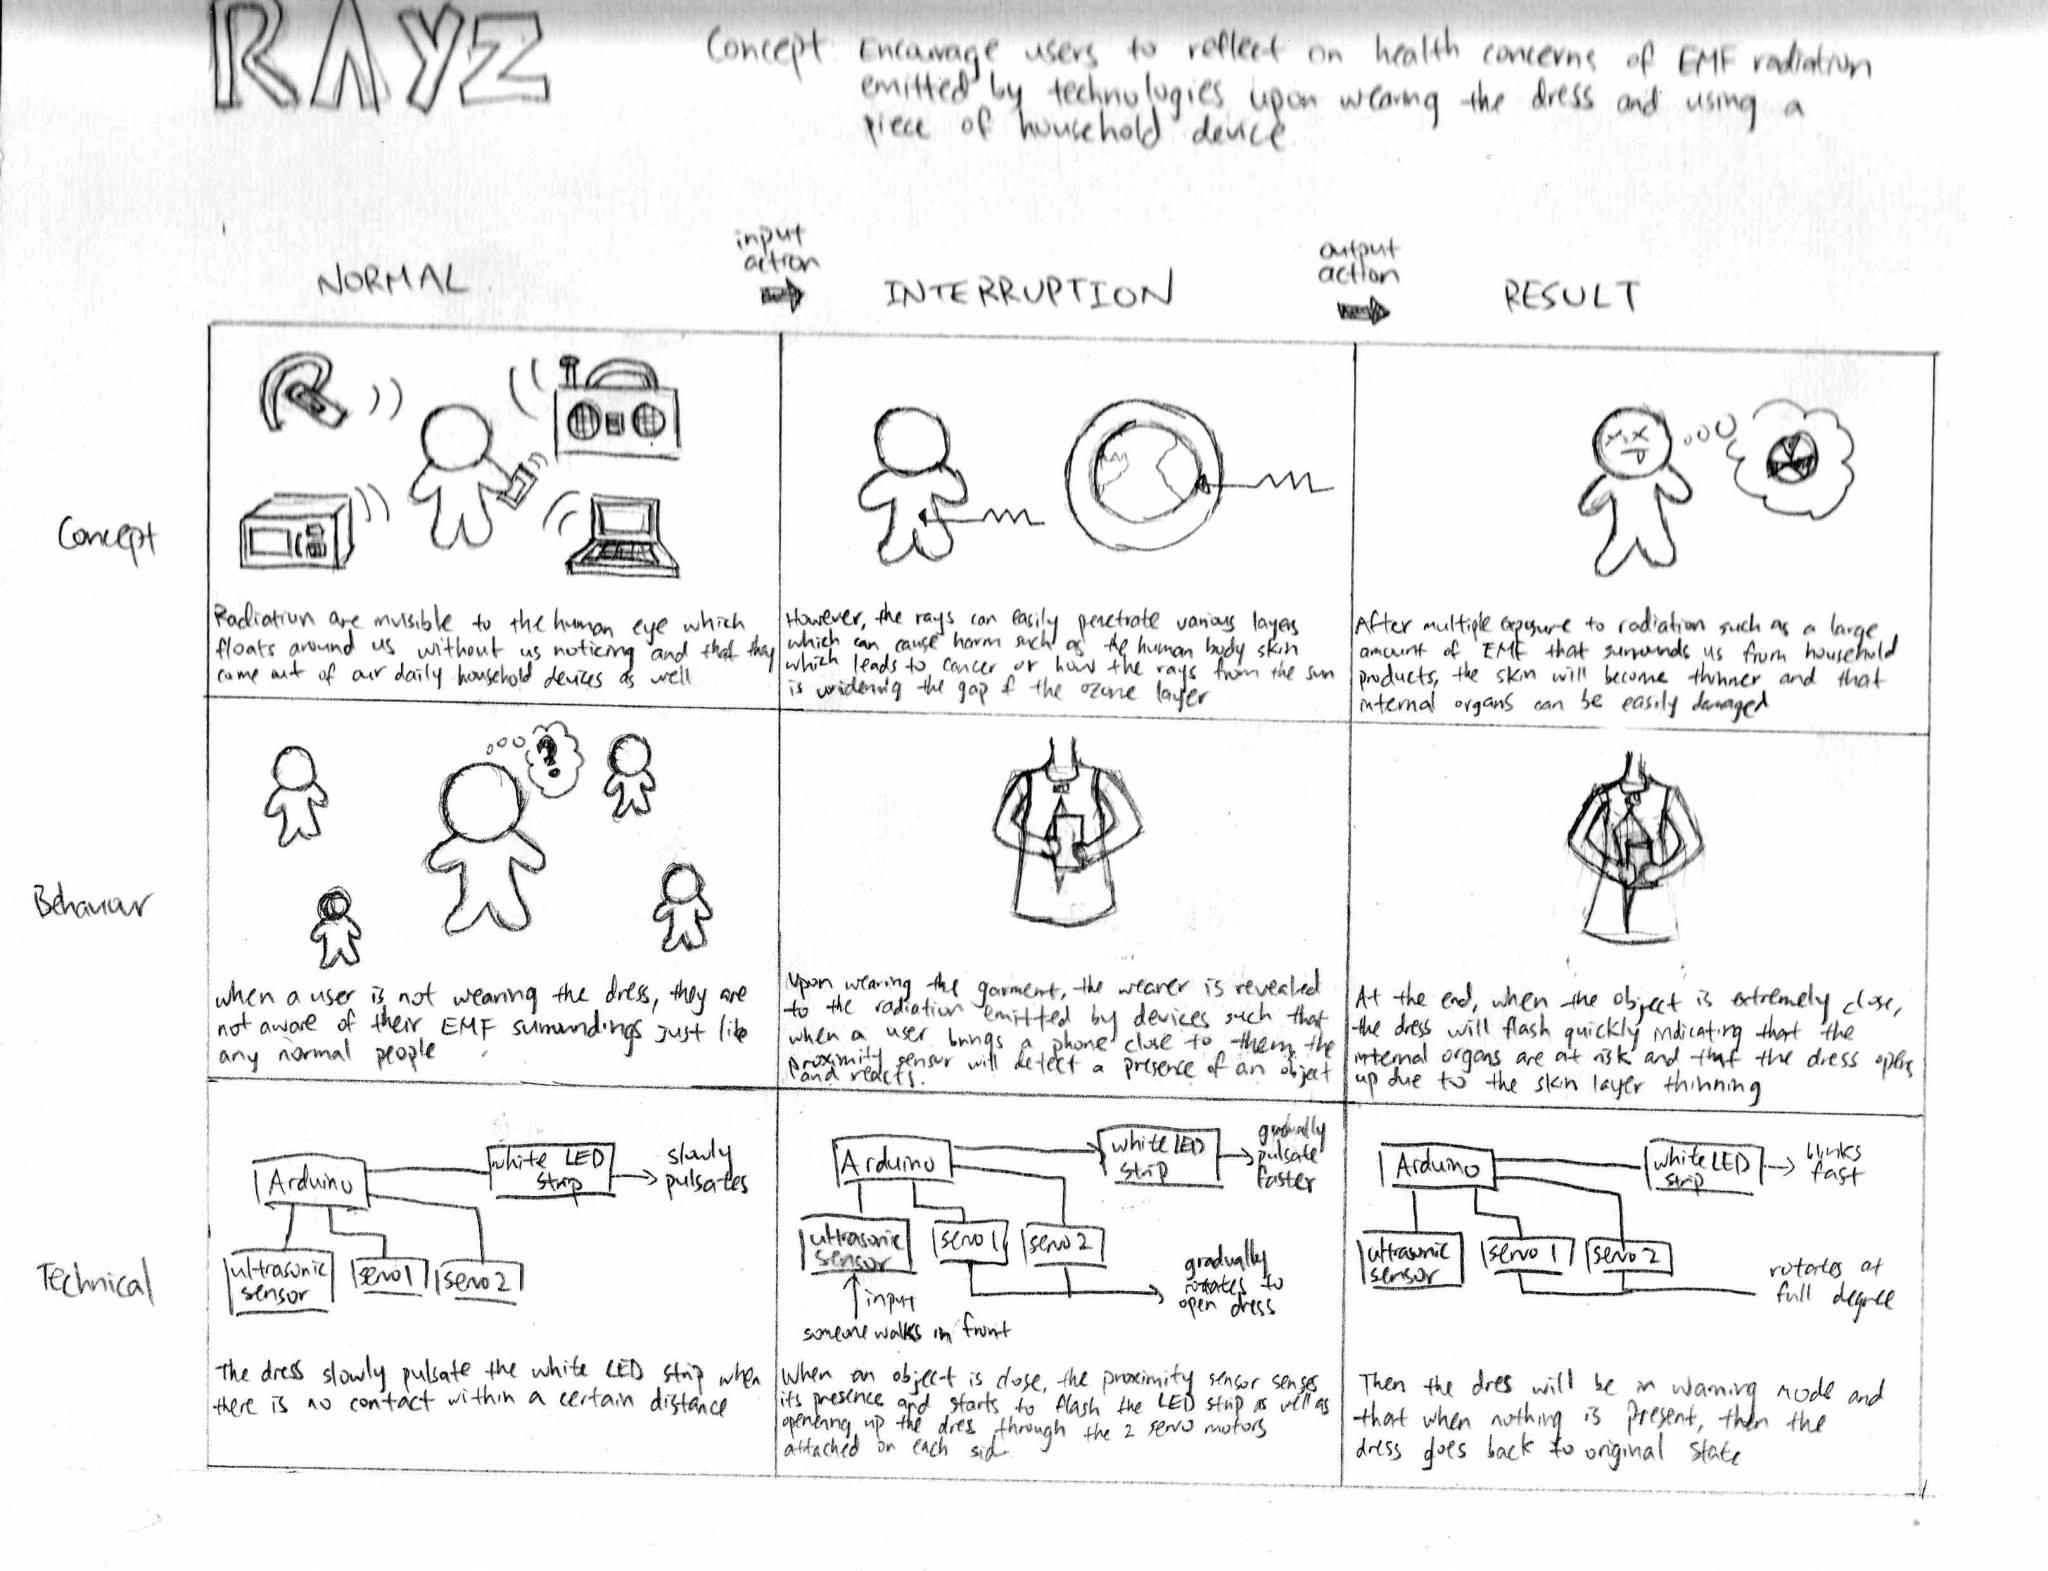 RAYZ
Concept: Encourage users to reflect on health concerns of EMF radiation
emitted by technologies upon wearing the dress and using a
piece of household device
input
action
output
action
NORMAL
INTERRUPTION
RESULT
Concept
Radiation are invisible to the human eye which
floats around us without us noticing and that they
come out of our daily household devices as well
However, the rays can easily penetrate various layers
which can cause harm such as the human body skin
which leads to cancer or how the rays from the sun
is widening the gap of the ozone layer
After multiple exposure to radiation such as a large
amount of EMF that surrounds us from household
products, the skin will become thinner and that
internal organs can be easily damaged
Behaviour
?
when a user is not wearing the dress, they are
not aware of their EMF surroundings just like
any normal people
Upon wearing the garment, the wearer is revealed
to the radiation emitted by devices such that
when a user brings a phone close to them, the
proximity sensor will detect a presence of an object
and reacts.
At the end, when the object is extremely close,
the dress will flash quickly indicating that the
internal organs are at risk and that the dress opens
up due to the skin layer thinning
Technical
Arduino
white LED
strip
slowly
pulsates
ultrasonic
sensor
servo 1
servo 2
The dress slowly pulsate the white LED strip when
there is no contact within a certain distance
Arduino
white LED
strip
gradually
pulsate
faster
ultrasonic
sensor
servo 1
servo 2
input
someone walks in front
gradually
rotates to
open dress
When an object is close, the proximity sensor senses
its presence and starts to flash the LED strip as well as
openening up the dres through the 2 servo motors
attached on each sid.
Arduino
white LED
strip
blinks
fast
ultrasonic
sensor
servo 1
servo 2
rotates at
full degree
Then the dres will be in warning mode and
that when nothing is present, then the
dress goes back to original state